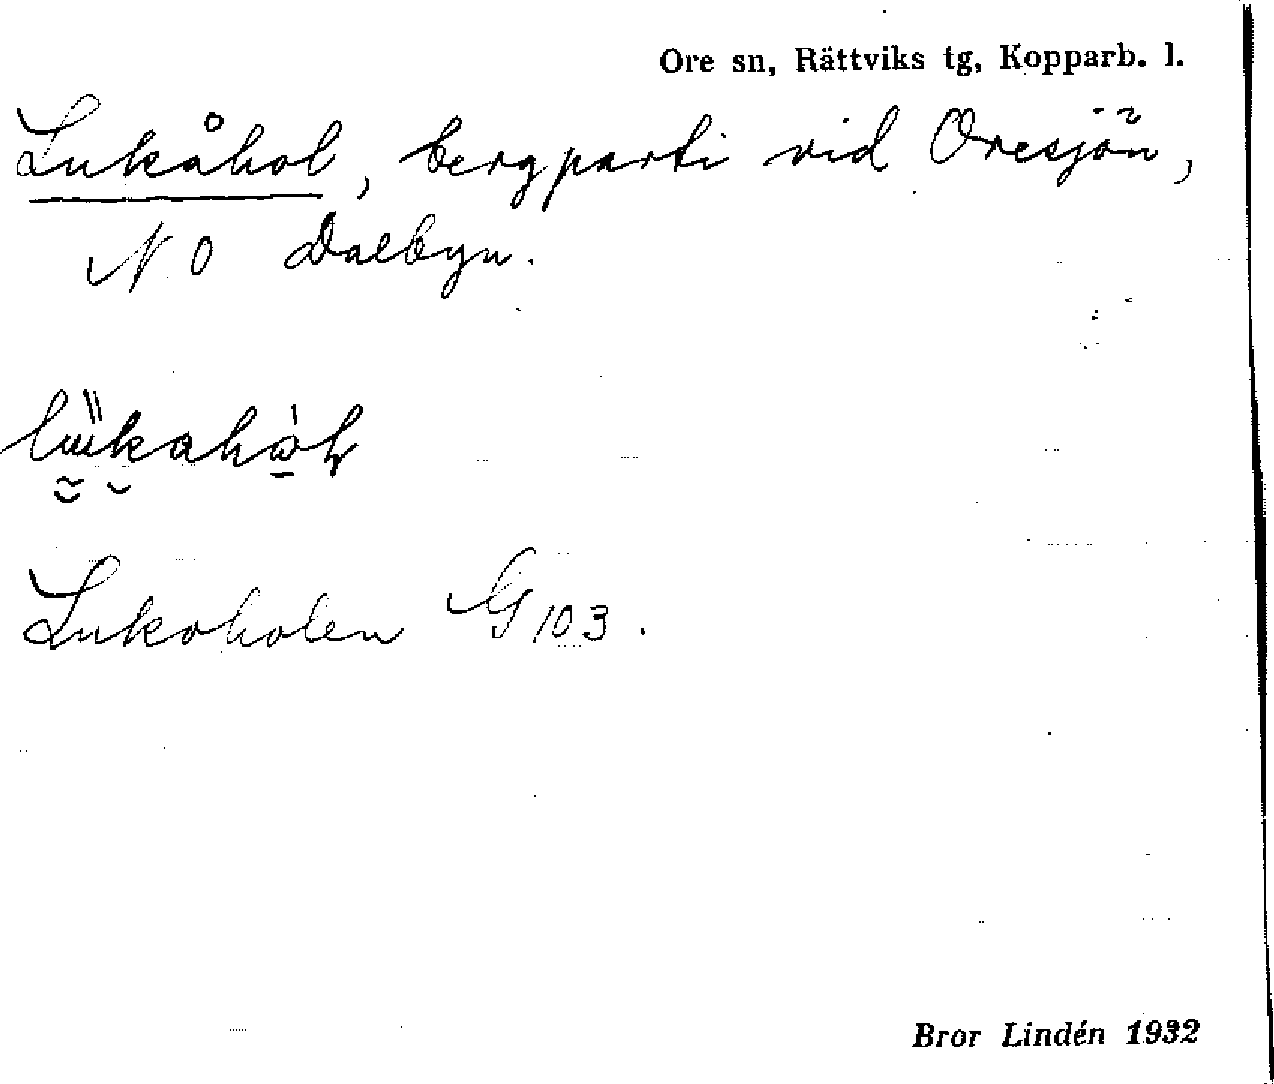 Ore sn, Rättviks tg, Kopparb. l.
Lukåhol, bergparti vid Oresjön,
NO Dalbyn.
Lukoholen G 103.
Bror Lindén 1932